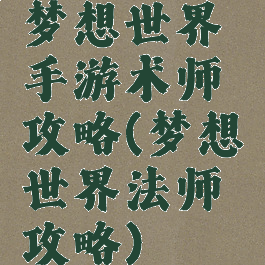 梦想世界
手游术师
攻略(梦想
世界法师
攻略)